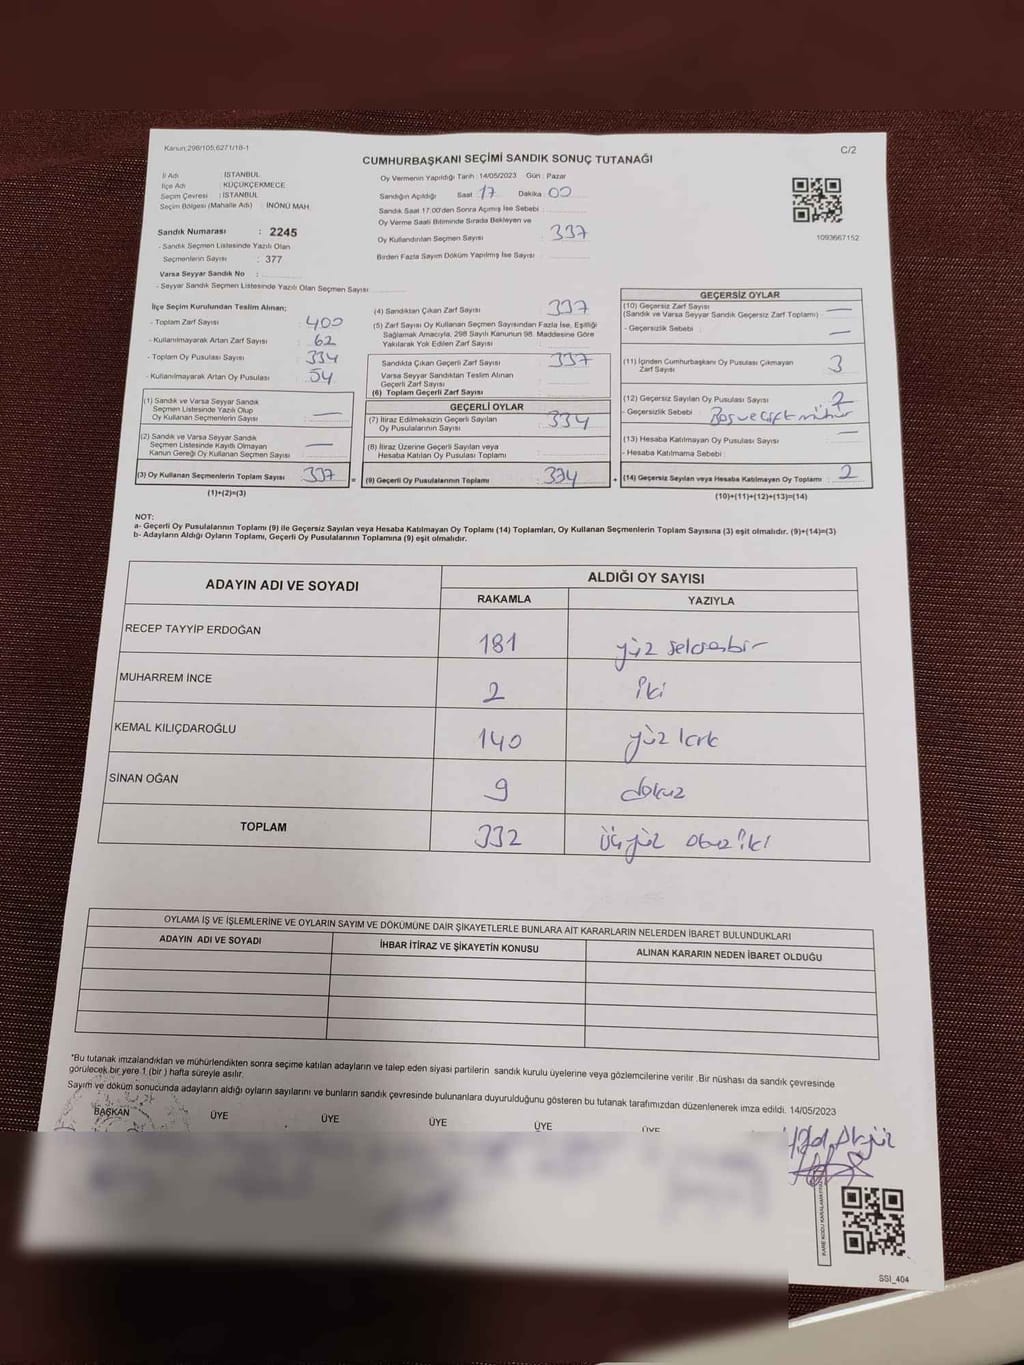 Kanun:298/105,6271/18-1
C/2
CUMHURBAŞKANI SEÇİMİ SANDIK SONUÇ TUTANAĞI
İl Adı : İSTANBUL
İlçe Adı : KÜÇÜKÇEKMECE
Seçim Çevresi : İSTANBUL
Seçim Bölgesi (Mahalle Adı) : İNÖNÜ MAH.
Sandık Numarası : 2245
- Sandık Seçmen Listesinde Yazılı Olan
Seçmenlerin Sayısı : 377
Varsa Seyyar Sandık No :
- Seyyar Sandık Seçmen Listesinde Yazılı Olan Seçmen Sayısı
Oy Vermenin Yapıldığı Tarih : 14/05/2023 Gün : Pazar
Sandığın Açıldığı Saat 17 Dakika 00
Sandık Saat 17:00'den Sonra Açılmış İse Sebebi :
Oy Verme Saati Bitiminde Sırada Bekleyen ve
Oy Kullandırılan Seçmen Sayısı : 337
Birden Fazla Sayım Döküm Yapılmış İse Sayısı :
1093667152
İlçe Seçim Kurulundan Teslim Alınan;
- Toplam Zarf Sayısı : 400
- Kullanılmayarak Artan Zarf Sayısı : 62
- Toplam Oy Pusulası Sayısı : 334
- Kullanılmayarak Artan Oy Pusulası : 54
(1) Sandık ve Varsa Seyyar Sandık
Seçmen Listesinde Yazılı Olup
Oy Kullanan Seçmenlerin Sayısı : —
(2) Sandık ve Varsa Seyyar Sandık
Seçmen Listesinde Kayıtlı Olmayan
Kanun Gereği Oy Kullanan Seçmen Sayısı : —
(3) Oy Kullanan Seçmenlerin Toplam Sayısı : 337
(1)+(2)=(3)
(4) Sandıktan Çıkan Zarf Sayısı : 337
(5) Zarf Sayısı Oy Kullanan Seçmen Sayısından Fazla İse, Eşitliği
Sağlamak Amacıyla, 298 Sayılı Kanunun 98. Maddesine Göre
Yakılarak Yok Edilen Zarf Sayısı :
Sandıkta Çıkan Geçerli Zarf Sayısı : 337
Varsa Seyyar Sandıktan Teslim Alınan
Geçerli Zarf Sayısı :
(6) Toplam Geçerli Zarf Sayısı :
GEÇERLİ OYLAR
(7) İtiraz Edilmeksizin Geçerli Sayılan
Oy Pusulalarının Sayısı : 334
(8) İtiraz Üzerine Geçerli Sayılan veya
Hesaba Katılan Oy Pusulası Toplamı :
= (9) Geçerli Oy Pusulalarının Toplamı : 334 +
GEÇERSİZ OYLAR
(10) Geçersiz Zarf Sayısı
(Sandık ve Varsa Seyyar Sandık Geçersiz Zarf Toplamı) : —
- Geçersizlik Sebebi : —
(11) İçinden Cumhurbaşkanı Oy Pusulası Çıkmayan
Zarf Sayısı : 3
(12) Geçersiz Sayılan Oy Pusulası Sayısı : 2
- Geçersizlik Sebebi : Boş ve çift mühür
(13) Hesaba Katılmayan Oy Pusulası Sayısı : —
- Hesaba Katılmama Sebebi :
(14) Geçersiz Sayılan veya Hesaba Katılmayan Oy Toplamı : 2
(10)+(11)+(12)+(13)=(14)
NOT:
a- Geçerli Oy Pusulalarının Toplamı (9) ile Geçersiz Sayılan veya Hesaba Katılmayan Oy Toplamı (14) Toplamları, Oy Kullanan Seçmenlerin Toplam Sayısına (3) eşit olmalıdır. (9)+(14)=(3)
b- Adayların Aldığı Oyların Toplamı, Geçerli Oy Pusulalarının Toplamına (9) eşit olmalıdır.
ADAYIN ADI VE SOYADI
ALDIĞI OY SAYISI
RAKAMLA YAZIYLA
RECEP TAYYİP ERDOĞAN 181 yüz seksenbir
MUHARREM İNCE 2 iki
KEMAL KILIÇDAROĞLU 140 yüz kırk
SİNAN OĞAN 9 dokuz
TOPLAM 332 üçyüz otuz iki
OYLAMA İŞ VE İŞLEMLERİNE VE OYLARIN SAYIM VE DÖKÜMÜNE DAİR ŞİKAYETLERLE BUNLARA AİT KARARLARIN NELERDEN İBARET BULUNDUKLARI
ADAYIN ADI VE SOYADI İHBAR İTİRAZ VE ŞİKAYETİN KONUSU ALINAN KARARIN NEDEN İBARET OLDUĞU
*Bu tutanak imzalandıktan ve mühürlendikten sonra seçime katılan adayların ve talep eden siyasi partilerin sandık kurulu üyelerine veya gözlemcilerine verilir. Bir nüshası da sandık çevresinde
görülecek bir yere 1 (bir) hafta süreyle asılır.
Sayım ve döküm sonucunda adayların aldığı oyların sayılarını ve bunların sandık çevresinde bulunanlara duyurulduğunu gösteren bu tutanak tarafımızdan düzenlenerek imza edildi. 14/05/2023
BAŞKAN ÜYE ÜYE ÜYE ÜYE ÜYE
SSI_404